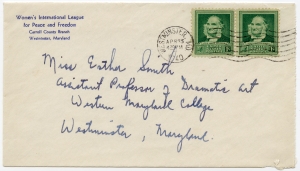 Women's International League
for Peace and Freedom
Carroll County Branch
Westminster, Maryland
WESTMINSTER, MD.
Miss Esther Smith
Assistant Professor of Dramatic Art
Western Maryland College
Westminster, Maryland.